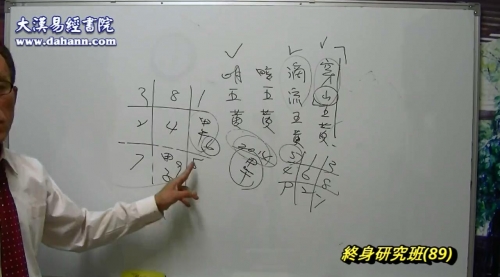 大漢易經書院
www.dahann.com
穿山五黃
流五黃
暗五黃
明五黃
3 8 1
2 4
7
5 1 3
4 6 8
2
終身研究班(89)